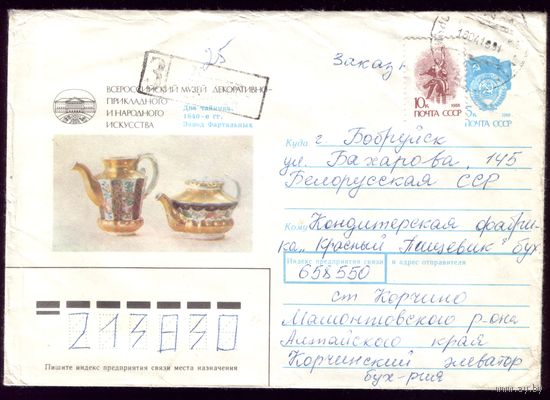 25
Заказ
ВСЕРОССИЙСКИЙ МУЗЕЙ ДЕКОРАТИВНО-
ПРИКЛАДНОГО
И НАРОДНОГО
ИСКУССТВА
Два чайника.
1840-е гг.
Завод Фартальных
10к 1988
ПОЧТА СССР
1988
ПОЧТА СССР
Куда г. Бобруйск
ул. Бахарова, 145
Белорусская ССР
Кому Кондитерская фабри-
ка „Красный Пищевик" бух
Индекс предприятия связи и адрес отправителя
658550
ст Корчино
Мамонтовского р-она
Алтайского края
Корчинский элеватор
бух-рия
213830
Пишите индекс предприятия связи места назначения